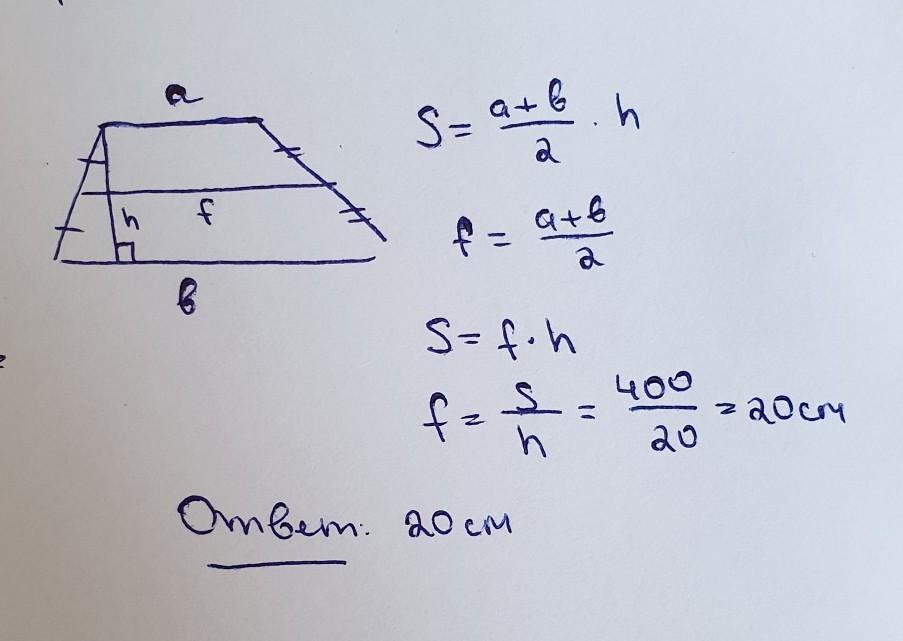 a
S = a+в/2 · h
h
f
f = a+в/2
в
S = f · h
f = S/h = 400/20 = 20см
Ответ: 20 см